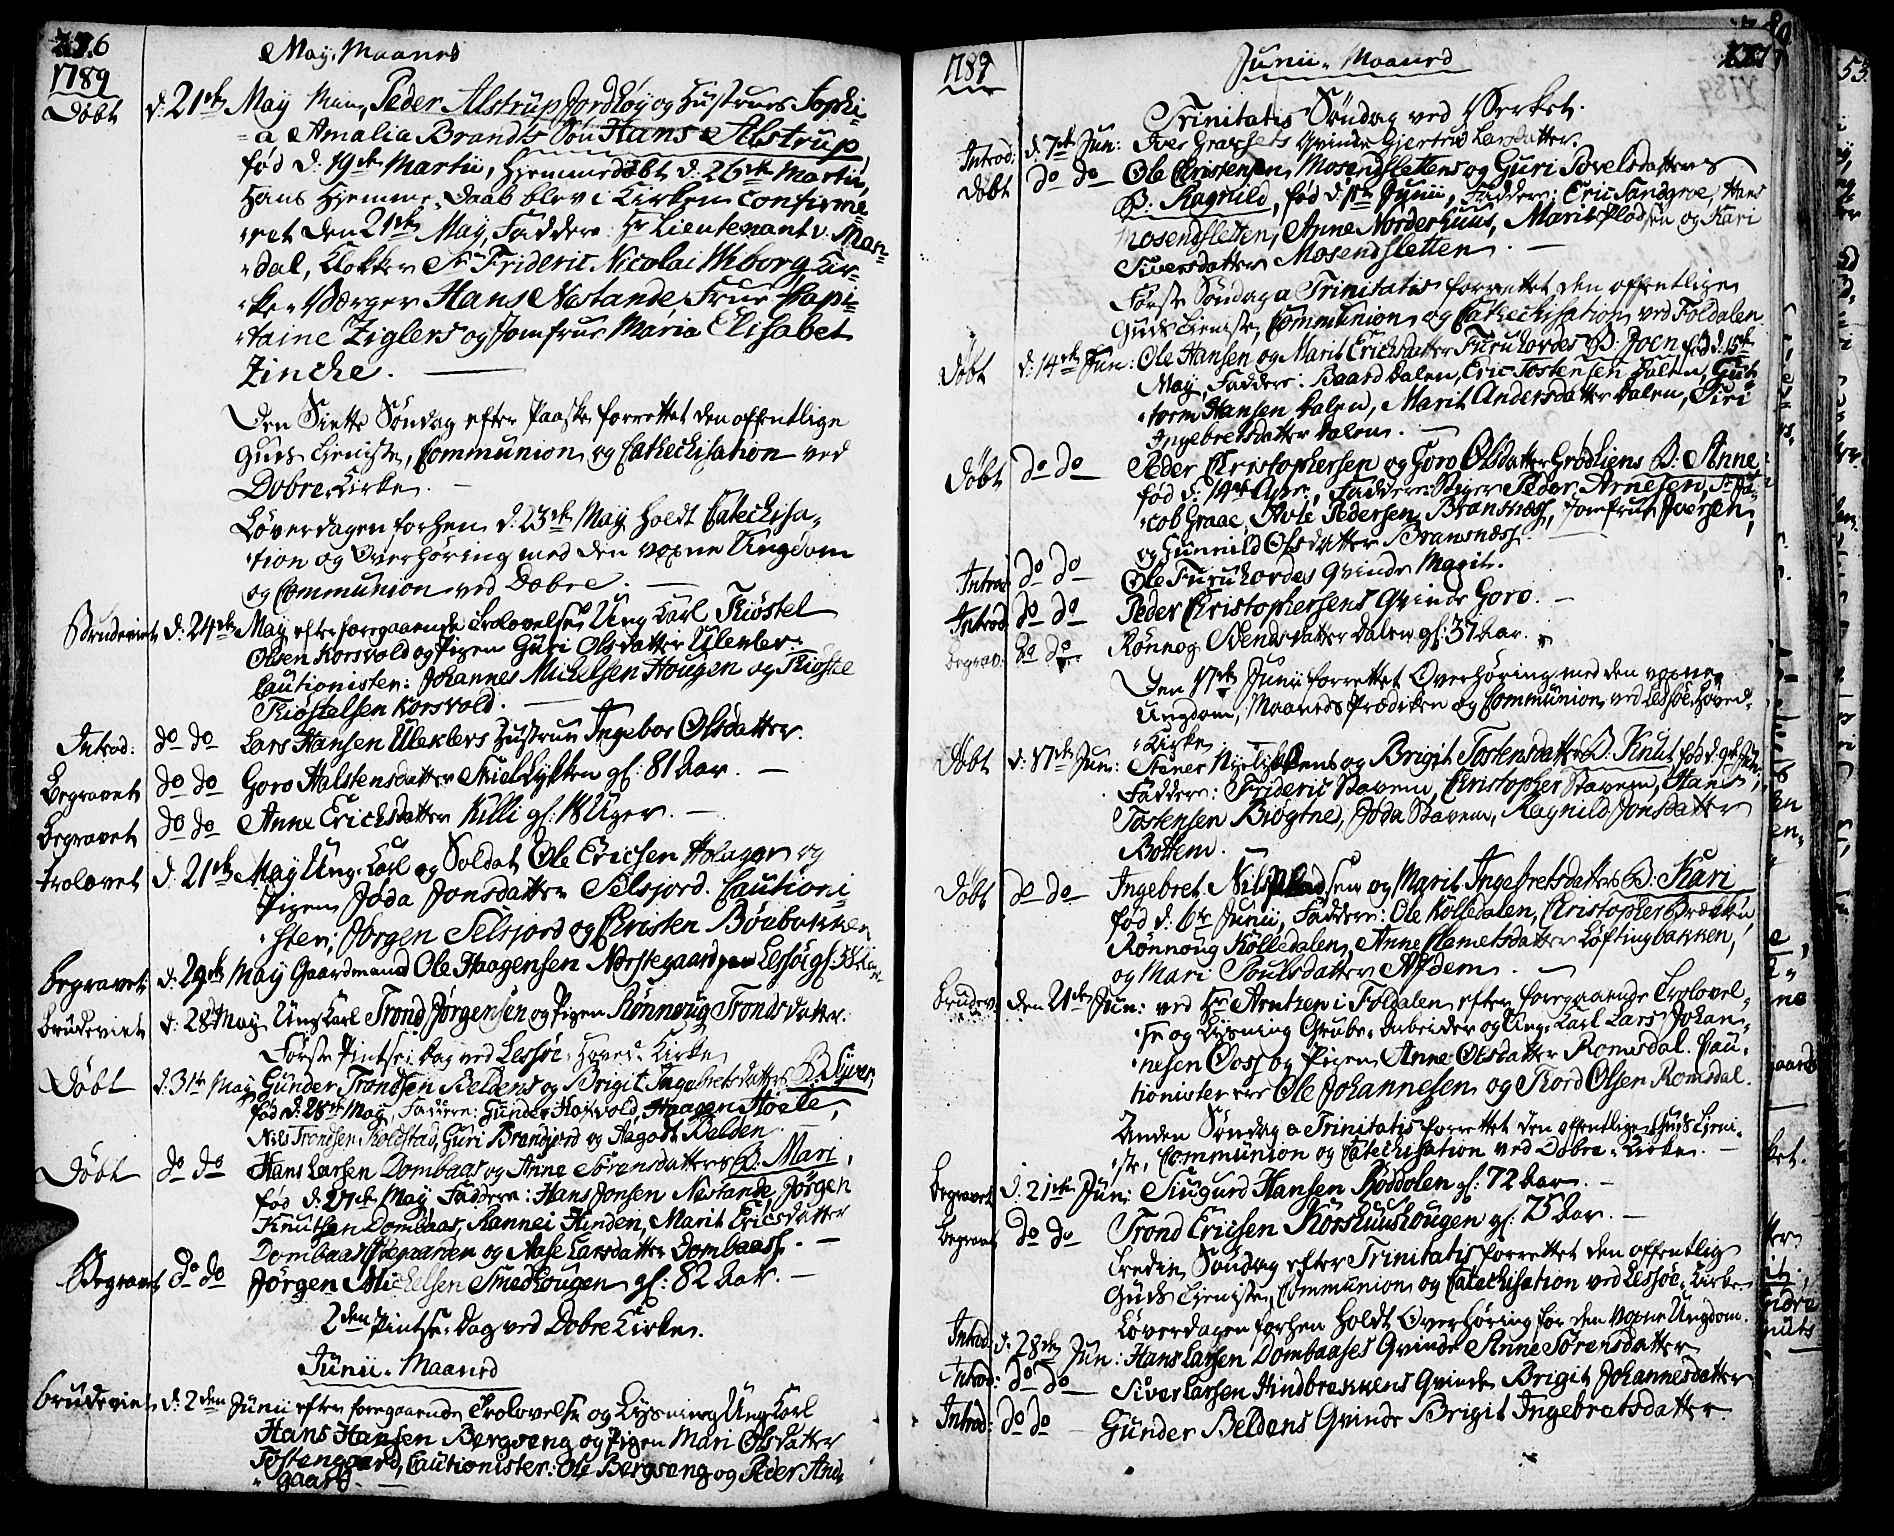 276
May. Maaned
1789
Döbt d. 21de May Peder Alstrup Jordhøy og Hustrues Sophi-
a Amalia Brandts Søn Hans Alstrup
fød d. 19de Martii, Hiemmedøbt d. 26de Martii,
Hans Hiemme Daab blev i Kirken confirme-
ret den 21de May, Faddere: Hr Lieutenant v:
dal, Klokker Sr Frideric Nicolai Wiborg, Kir-
ke-Værger Hans Nestande, Frue Capi-
taine Ziglers og Jomfrue Maria Elisabet
Zincke.
Den Siette Søndag efter Paaske forrettet den offentlige
Guds Tieniste, Communion og Catechisation ved
Dobre Kirke.
Løverdagen forhen d. 23de May holdt Catechisa-
tion og Overhöring med den voxne Ungdom
og Communion ved Dobre.
Brudeviet d. 24de May efter foregaaende Trolovelse Ung Karl Kiøstel
Olsen Korsvold og Pigen Guri Olsdatter Ulekler.
Cautionister: Johannes Michelsen Hougen og Kiøstel
Kiøstelsen Korsvold.
Introd: do do Lars Hansen Uleklevs Hustrue Ingebor Olsdatter.
Begravet do do Goro Halstensdatter Skiellykken gl: 81 Aar.
Begravet do do Anne Erichsdatter Killi gl: 18 Uger.
Trolovet d. 21de May Ung Karl og Soldat Ole Ericsen Holager og
Pigen Jøda Jonsdatter Selsjord. Cautioni-
ster; Jørgen Selsjord og Christen Böebakken
Begravet d: 29de May Gaardmand Ole Haagensen Nørstegaard Lessöe gl: 58
Brudeviet d: 28de May Ung Karl Trond Jørgensen og Pigen Rönnoug Tronds datter.
Første Pintse Dag ved Lessöe Hoved-Kirke
Döbt d. 31te May Gunder Trondsen Beldens og Brigit Ingebretsdatters B. Syver,
fød d. 28de May, Faddere: Gunder Hoxvold, Haagen Höete,
Nils Trondsen Kolstad, Guri Brandjord og Aagodt Belden
Döbt do do Hans Larsen Dombaas og Anne Sörensdatters B: Mari,
fød d. 27de May Faddere: Hans Jonsen Nestande, Jörgen
Knuthsen Dombaas, Rannei Hinden, Marit Ericsdatter
Dombaas og Aase Larsdatter Dombaas.
Begravet do do Jörgen Michelsen Smedhougen gl: 82 Aar.
2den Pintse-Dag ved Dobre Kirke.
Junii-Maaned
Brudeviet d. 2den Junii efter foregaaende Trolovelse og Lysning Ung Karl
Hans Hansen Bergseng og Pigen Mari Olsdatter
Tostengaard, Cautionister: Ole Bergseng og Peder And-
gaard.
1789
Junii-Maaned
277
Trinitatis Søndag ved Værket.
Introd: d. 7de Jun: Iver Qvinde Gjertrud Larsdatter.
Döbt do do Ole Christensen Mosendsletten og Guri Povelsdatters
B: Ragnild, fød d. 1te Junii, Faddere: Eric Sandgroe, Hans
Mosendsletten, Anne Norderhuus, Marit og Kari
Siversdatter Mosendsletten.
Første Søndag a Trinitatis forrettet den offentlige
Guds Tieniste, Communion og Catechisation ved Foldalen
Döbt d. 14de Jun: Ole Hansen og Marit Erichsdatter Furuhovdes B: Joen fød d.
May, Faddere: Baard Dalen, Eric Tostensen Dalen, Gut-
torm Hansen Dalen, Marit Andersdatter Dalen, Siri
Ingebretsdatter Dalen.
Döbt do do Peder Christophersen og Goro Olsdatter Grödliens B: Anne
fød d: 14de Apr:, Faddere: Stiger Peder Arnesen, Sr Ja-
cob Graae, Avle Pedersen Bransnæss, Jomfrue Iversen,
og Gunnild Olsdatter Bransnæss.
Introd: do do Ole Furuhovdes Qvinde Marit.
Introd do do Peder Christophersens Qvinde Goro.
Begrav: do do Rönnog Svendsdatter Dalen gl: 37 Aar.
Den 17de Junii forrettet Overhöring med den voxne
Ungdom, Maaneds Prædiken og Communion ved Lessöe Hoved-
Kirke
Döbt d: 17de Jun: Stener og Brigit Tostensdatters B: Knut, fød d. 9de
Faddere: Frideric Stavem, Christopher Stavem, Hans
Tostensen Biøgtne, Jøda Stavem, Ragnild Jonsdatter
Bottem.
Döbt do do Ingebret Nils og Marit Ingebretsdatters B: Kari
fød d. 6te Junii, Faddere: Ole Kolledalen, Christopher
Rönnoug Kolledalen, Anne Hemetsdatter Løftingbakken,
og Mari Poulsdatter Avdem.
Brudev: den 21de Jun: ved Hr Arntzen i Foldalen efter foregaaende Trolovel-
se og Lysning Grube-Arbeider og Ung-Karl Lars Johan-
nesen Voss og Pigen Anne Olsdatter Romsdal. Cau-
tionister ere Ole Johannesen og Tord Olsen Romsdal.
Anden Søndag a Trinitatis forrettet den offentlige Guds Tieni-
ste, Communion og Catechisation ved Dobre-Kirke.
Begravet d. 21de Jun: Siugurd Hansen Röddolen gl: 72 Aar.
Begravet do do Trond Ericsen Korshuushougen gl: 75 Aar.
Tredie Søndag efter Trinitatis forrettet den offentlig
Guds Tieniste, Communion og Catechisation ved Lessöe, Kirke.
Løverdagen forhen holdt Overhöring for den voxne Ungdom.
Introd: d. 28de Jun: Hans Larsen Dombaases Qvinde Anne Sörensdatter
Introd: do do Siver Larsen Hindbrekkens Qvinde Brigit Johannesdatter
Introd: do do Gunder Beldens Qvinde Brigit Ingebretsdatter.